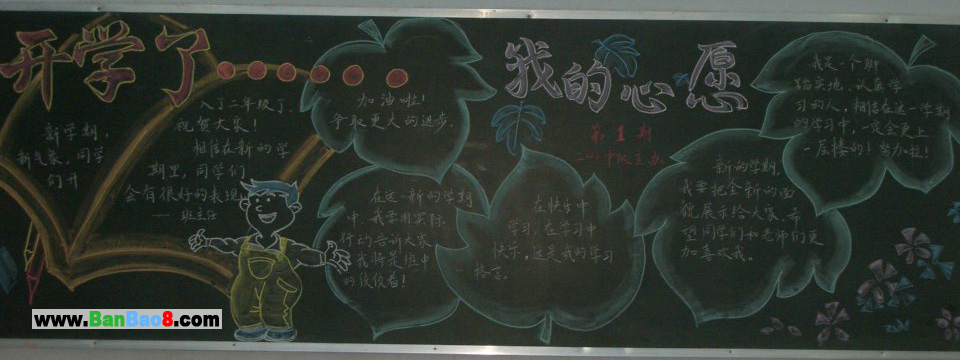 开学了……
新学期,
新气象,同学
们升
入了二年级了,
祝贺大家!
相信在新的学
期里,同学们
会有很好的表现
——班主任
加油啦!
争取更大的进步。
在这一新的学期
中,我要用实际
行动告诉大家
我将是班中
的佼佼者!
我的心愿
第1期
在快乐中
学习,在学习中
快乐,这是我的学习
格言。
新的学期,
我要把全新的面
貌展示给大家,希
望同学们和老师们更
加喜欢我。
我是一个脚
踏实地、认真学
习的人,相信在这一学期
的学习中,一定会更上
一层楼的!努力啦!
www.BanBao8.com